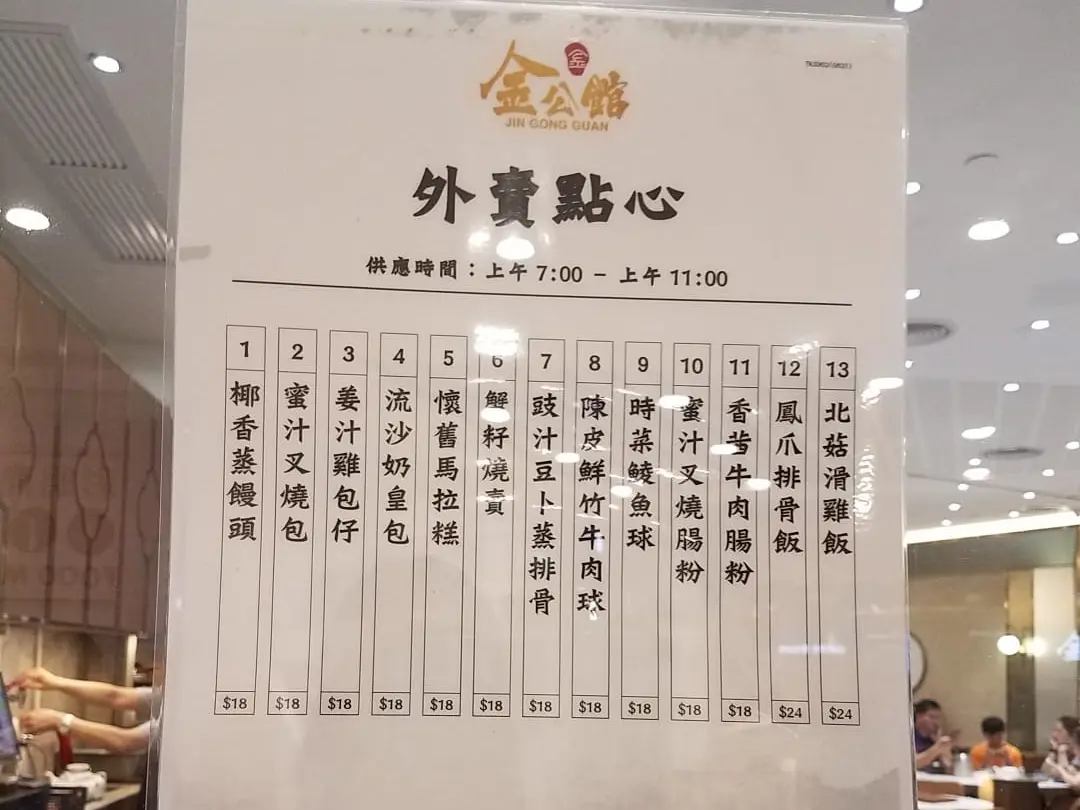 金
金公館
JIN GONG GUAN
外賣點心
供應時間：上午 7:00 - 上午 11:00
1 椰香蒸饅頭 $18
2 蜜汁叉燒包 $18
3 姜汁雞包仔 $18
4 流沙奶皇包 $18
5 懷舊馬拉糕 $18
6 蟹籽燒賣 $18
7 豉汁豆卜蒸排骨 $18
8 陳皮鮮竹牛肉球 $18
9 時菜鯪魚球 $18
10 蜜汁叉燒腸粉 $18
11 香茜牛肉腸粉 $18
12 鳳爪排骨飯 $24
13 北菇滑雞飯 $24